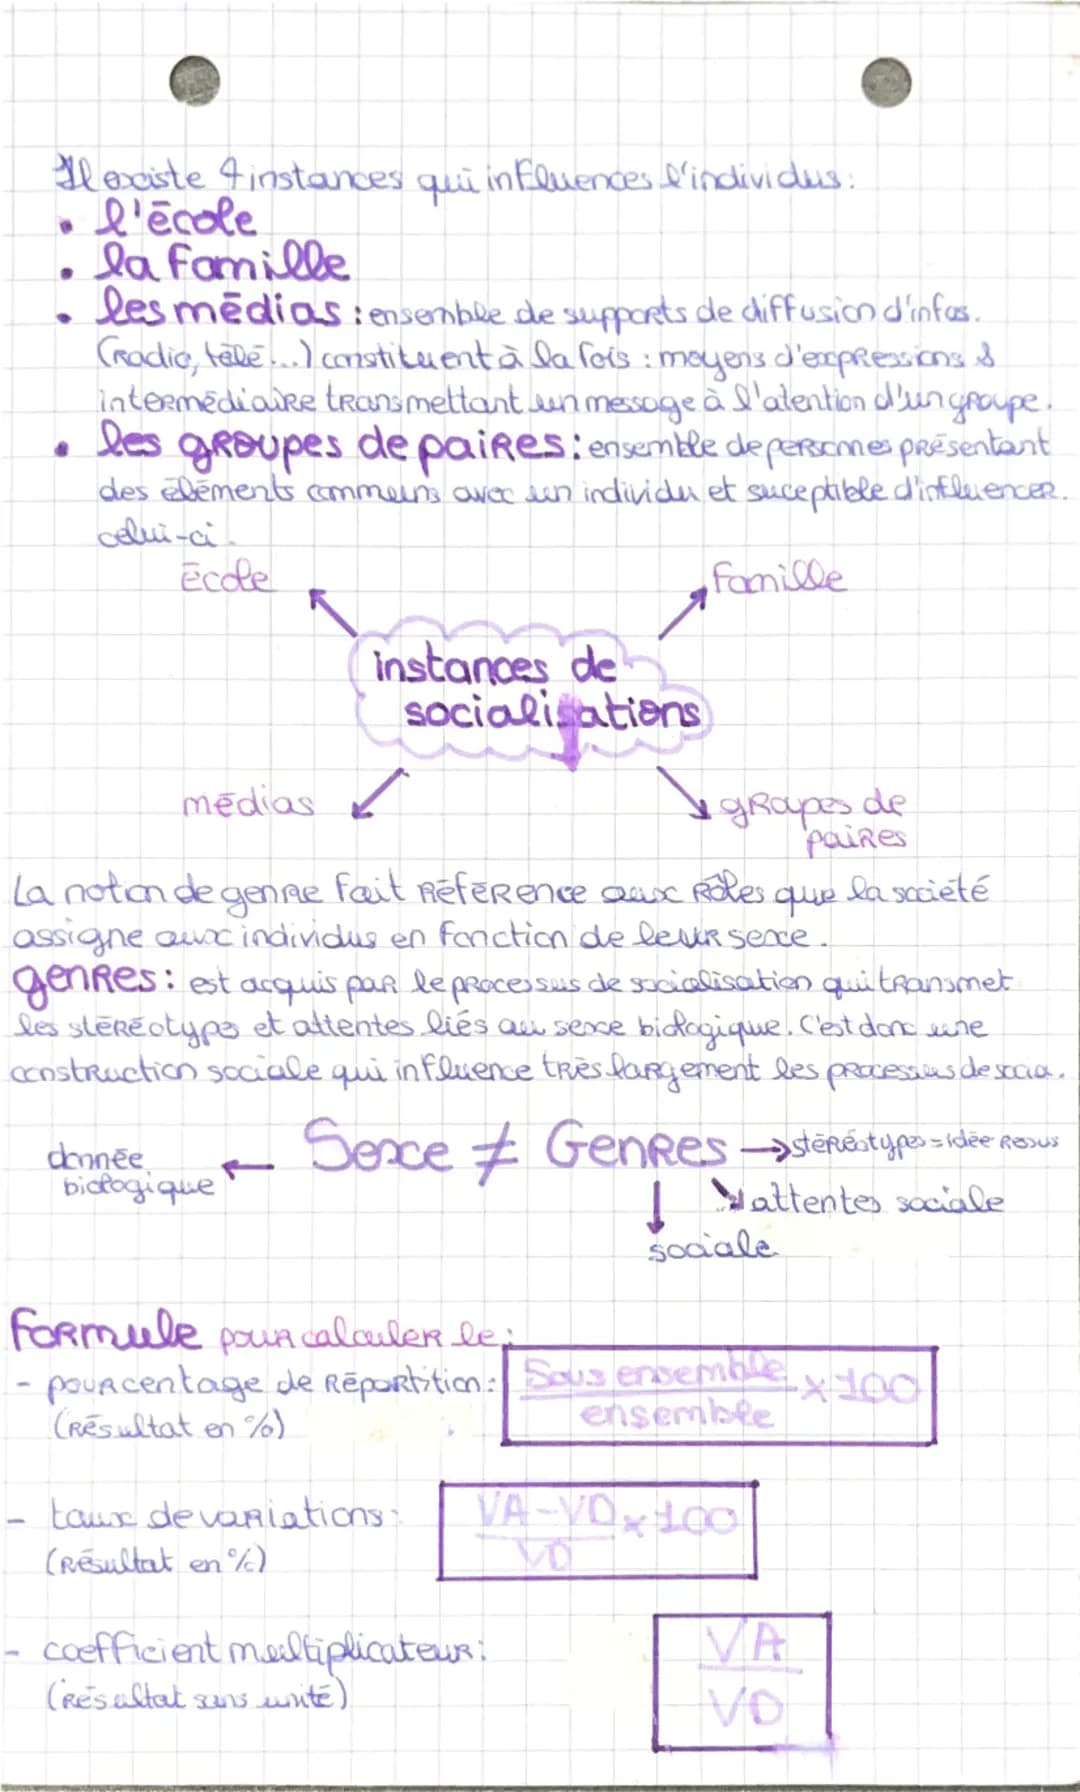 Il existe 4 instances qui influences l'individus :
• l'école
• la famille
• les médias : ensemble de supports de diffusion d'infos.
(radio, télé...) constituent à la fois : moyens d'expressions &
intermédiaire transmettant un message à l'atention d'un groupe.
• les groupes de paires : ensemble de personnes présentant
des éléments communs avec un individu et suceptible d'influencer.
celui-ci.
École
famille
instances de
socialisations
médias
groupes de
paires
La notion de genre fait référence aux rôles que la société
assigne aux individus en fonction de leur sexe.
genres : est acquis par le processus de socialisation qui transmet
les stéréotypes et attentes liés au sexe biologique. C'est donc une
construction sociale qui influence très largement les processus de socia.
donnée
biologique
← Sexe ≠ Genres → stéréotypes = idée reçus
attentes sociale
sociale
formule pour calculer le :
- pourcentage de répartition : Sous ensemble x 100
ensemble
(résultat en %)
- taux de variations : VA-VD x 100
VD
(résultat en %)
- coefficient multiplicateur : VA
VD
(résultat sans unité)